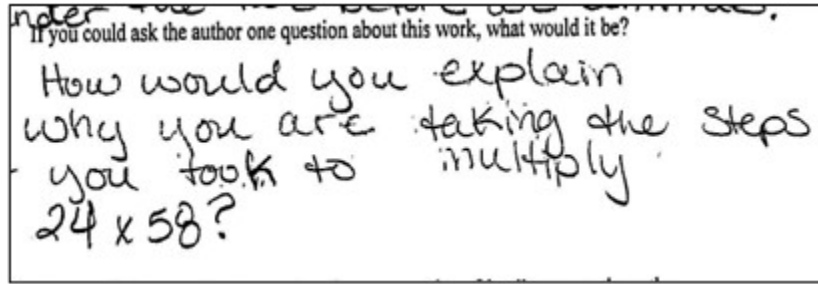 If you could ask the author one question about this work, what would it be?
How would you explain
why you are taking the steps
you took to multiply
24 x 58?